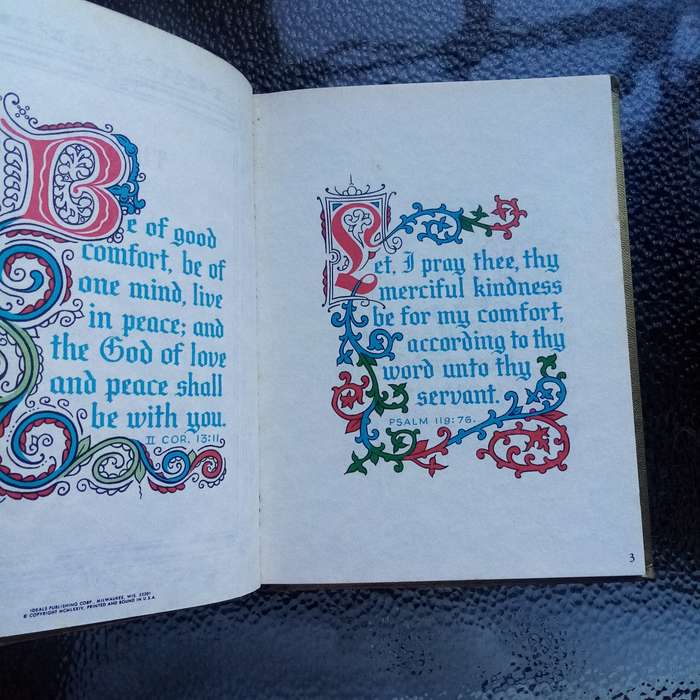 Be of good
comfort, be of
one mind, live
in peace; and
the God of love
and peace shall
be with you.
II COR. 13:11
IDEALS PUBLISHING CORP., MILWAUKEE, WIS. 53201
© COPYRIGHT MCMLXXIV, PRINTED AND BOUND IN U.S.A.
Let, I pray thee, thy
merciful kindness
be for my comfort,
according to thy
word unto thy
servant.
PSALM 119:76.
3